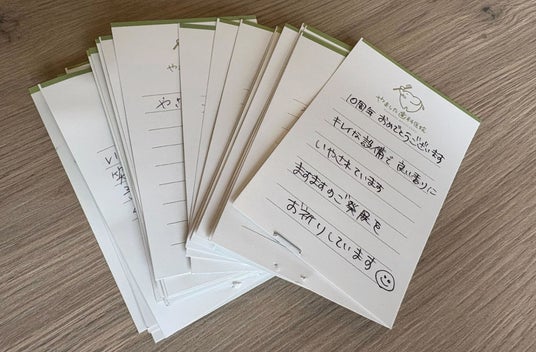 やました歯科医院
10周年 おめでとうございます
キレイな設備で良い香りに
いやされています
ますますのご発展を
お祈りしています